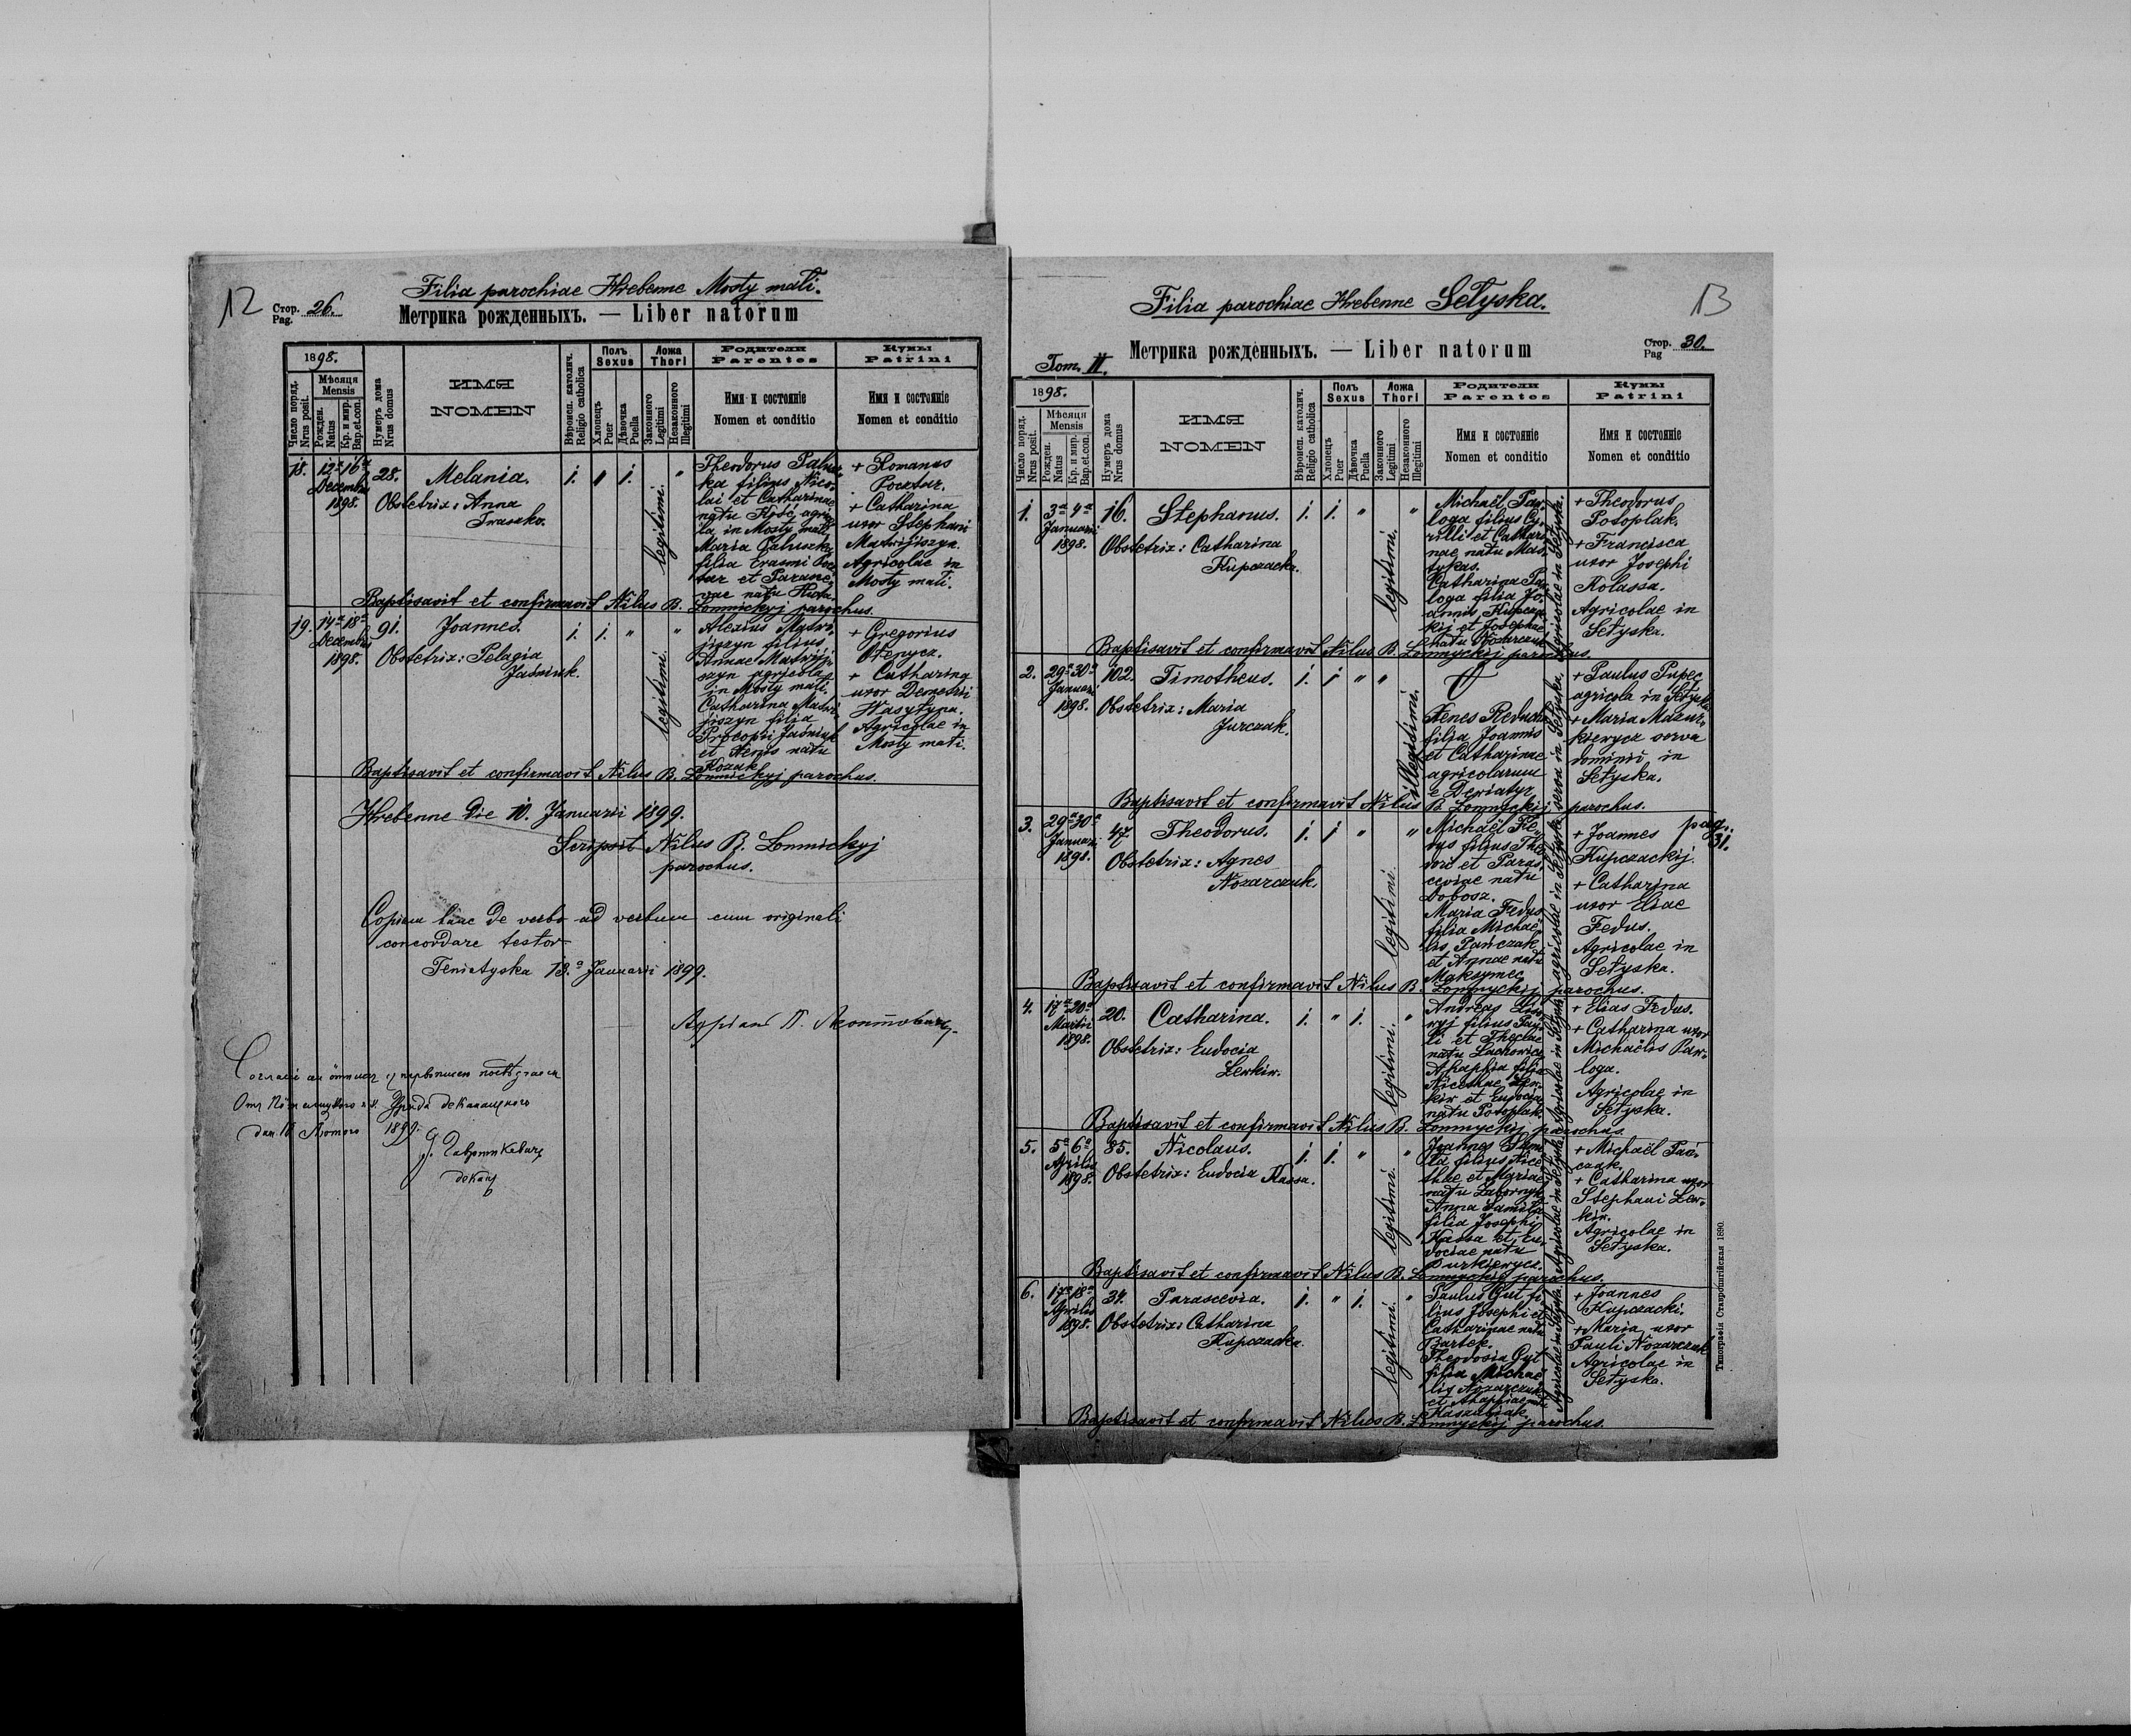 12
Filia parochiae Hrebenne Mosty mali.
Стор. 26.
Pag.
Метрика рожденныхъ. — Liber natorum
1898.
Число поряд.
Nrus posit.
Мѣсяця
Mensis
Рожден.
Natus
Кр. и мир.
Bap.et.con.
Нумеръ дома
Nrus domus
ИМЯ
NOMEN
Вѣроисп. католич.
Religio catholica
Полъ
Sexus
Хлопецъ
Puer
Дѣвочка
Puella
Ложа
Thori
Законного
Legitimi
Незаконного
Illegitimi
Родители
Parentes
Имя и состоянiе
Nomen et conditio
Кумы
Patrini
Имя и состоянiе
Nomen et conditio
18. 12a 16a
Decembris
1898.
28. Melania. 1. " 1. legitimi. "
Obstetrix: Anna
Theodorus
ka filius Nico-
lai et Catharinae
natu agrico-
la in Mosty mali
Maria
filia
et Parasce-
vae natu
+ Romanus
Pocztar.
+ Catharina
uxor Stephani
Matwijiszyn.
Agricolae in
Mosty mali.
Baptisavit et confirmavit Nilus B. Lomnickyj parochus.
19. 14a 18a
Decembris
1898.
91. Joannes. 1. 1. " legitimi. "
Obstetrix: Pelagia
Jaśniuk.
Alexius Matwi-
jiszyn filius
Annae Matwiji-
szyn agricolae
in Mosty mali.
Catharina Matwi-
jiszyn filia
Procopii Jaśniuk
et Xenis natu
Kozak
+ Gregorius
+ Catharina
uxor Demetrii
Wasylyna.
Agricolae in
Mosty mali.
Baptisavit et confirmavit Nilus B. Lomnickyj parochus.
Hrebenne Die 10. Januarii 1899.
Scripsit Nilus B. Lomnickyj
parochus.
Copiam hanc de verbo ad verbum cum originali
concordare testor
Teniatyska 13.a Januarii 1899.
1899.
деканъ
Filia parochiae Hrebenne Sełyska.
13
Tom. II.
Метрика рожденныхъ. — Liber natorum
Стор. 30.
Pag
1898.
Число поряд.
Nrus posit.
Мѣсяця
Mensis
Рожден.
Natus
Кр. и мир.
Bap.et.con.
Нумеръ дома
Nrus domus
ИМЯ
NOMEN
Вѣроисп. католич.
Religio catholica
Полъ
Sexus
Хлопецъ
Puer
Дѣвочка
Puella
Ложа
Thori
Законного
Legitimi
Незаконного
Illegitimi
Родители
Parentes
Имя и состоянiе
Nomen et conditio
Кумы
Patrini
Имя и состоянiе
Nomen et conditio
1. 3a 4a
Januarii
1898.
16. Stephanus. 1. 1. " legitimi. "
Obstetrix: Catharina
Kupczacka.
Michaël Paw-
loga filius Cy-
rilli et Cathari-
nae natu Mas-
tykas.
Catharina Paw-
loga filia Jo-
annis Kupcza-
kij et Josephae
natu Nozarczuk
Agricolae in Sełyska.
+ Theodorus
Potoplak.
+ Francisca
uxor Josephi
Kolassa.
Agricolae in
Sełyska.
Baptisavit et confirmavit Nilus B. Lomnyckij parochus.
2. 29a 30a
Januarii
1898.
102. Timotheus. 1. 1 " " illegitimi.
Obstetrix: Maria
Jurczak.
Xenes
filia Joannis
et Catharinae
agricolarum
e Dewiatyr
serva in Sełyska.
+ Paulus Pupec
agricola in Sełyska
+ Maria Mazur-
kiewycz serva
dominii in
Sełyska.
Baptisavit et confirmavit Nilus B. Lomnyckij parochus.
3. 29a 30a
Januarii
1898.
47. Theodorus. 1. 1 " legitimi. "
Obstetrix: Agnes
Nozarczuk.
Michaël Fe-
dus filius Theo-
dori et Paras-
ceviae natu
Dobosz.
Maria Fedus
filia Michaë-
lis Pańczak
et Annae natu
Maksymec
agricolae in Sełyska
+ Joannes
Kupczackij.
+ Catharina
uxor Eliae
Fedus.
Agricolae in
Sełyska.
pag.
31.
Baptisavit et confirmavit Nilus B. Lomnyckij parochus.
4. 17a 20a
Martii
1898.
20. Catharina. 1. " 1. legitimi. "
Obstetrix: Eudocia
Lewkiw.
Andreas
filius Pau-
li et Theclae
natu Lachowicz
Ahaphia filia
Nicethae Lew-
kiw et Eudociae
natu Potoplak.
Agricolae in Sełyska
+ Elias Fedus.
+ Catharina uxor
Michaëlis Paw-
loga.
Agricolae in
Sełyska.
Baptisavit et confirmavit Nilus B. Lomnyckij parochus.
5. 5a 6a
Aprilis
1898.
85. Nicolaus. 1. 1. " legitimi. "
Obstetrix: Eudocia Kassa.
Joannes
filius Nice-
thae et Mariae
natu Zabornyk
Anna
filia Josephi
Kassa et Eu-
dociae natu
Agricolae in Sełyska
+ Michaël Pań-
czak.
+ Catharina uxor
Stephani Lew-
kiw.
Agricolae in
Sełyska.
Baptisavit et confirmavit Nilus B. Lomnyckij parochus.
6. 17a 18a
Aprilis
1898.
34. Parascevia. 1. " 1. legitimi. "
Obstetrix: Catharina
Kupczacka.
Paulus Gut fi-
lius Josephi et
Catharinae natu
Bartek.
Theodosia Gut
filia Michaë-
lis Nozarczuk
et Ahaphiae natu
Agricolae in Sełyska
+ Joannes
Kupczacki.
+ Maria uxor
Pauli Nozarczuk
Agricolae in
Sełyska.
Baptisavit et confirmavit Nilus B. Lomnyckij parochus.
Типографiя Ставропигiйская 1890.